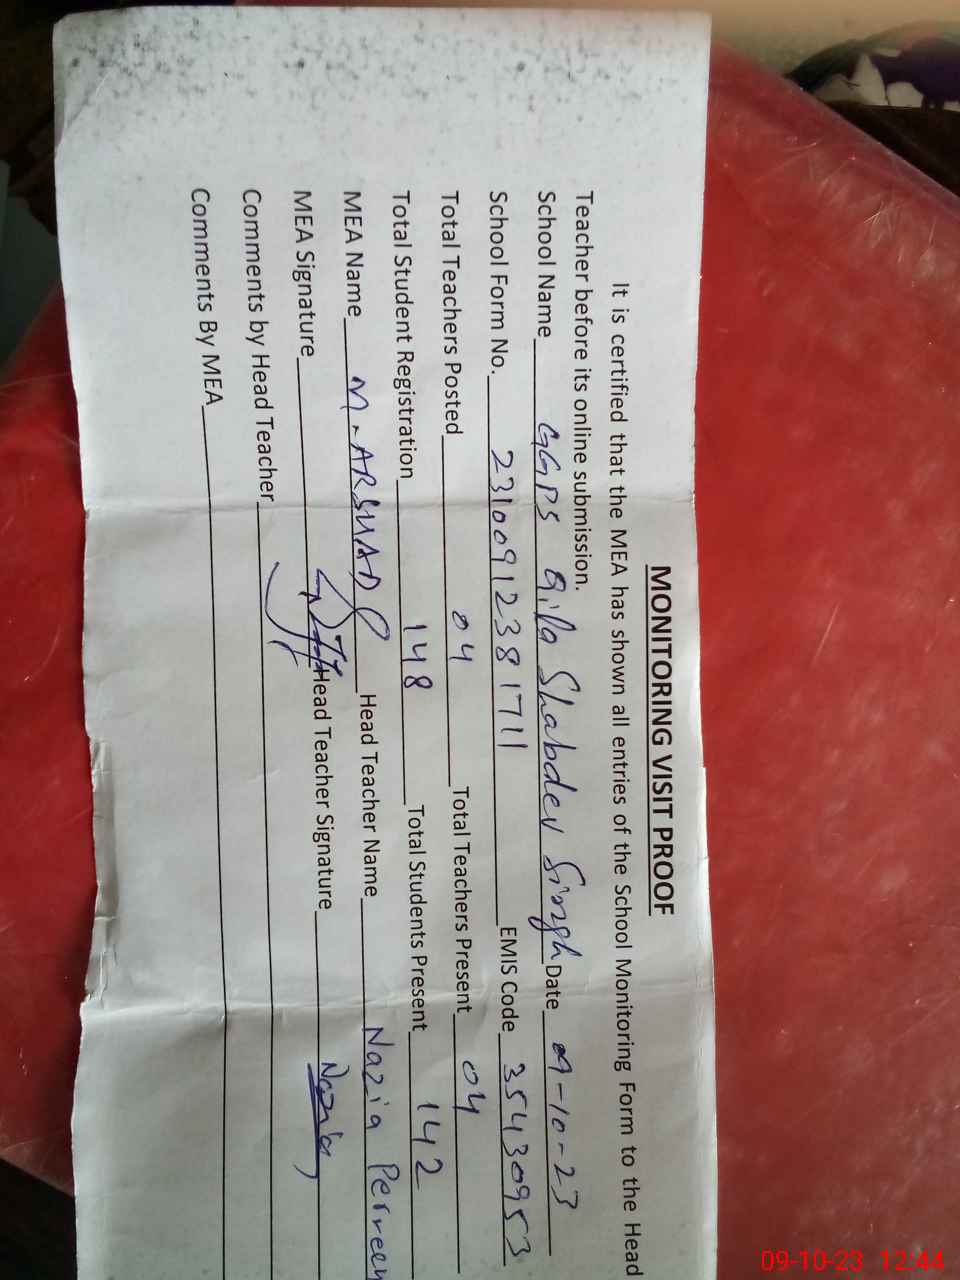 MONITORING VISIT PROOF
It is certified that the MEA has shown all entries of the School Monitoring Form to the Head
Teacher before its online submission.
School Name GGPS Qila Shabdev Singh Date 09-10-23
School Form No. 23100912381711 EMIS Code 35430953
Total Teachers Posted 04 Total Teachers Present 04
Total Student Registration 148 Total Students Present 142
MEA Name M-ARSHAD Head Teacher Name Nazia Perveen
MEA Signature Head Teacher Signature Nazia
Comments by Head Teacher
Comments By MEA
09-10-23 12:44